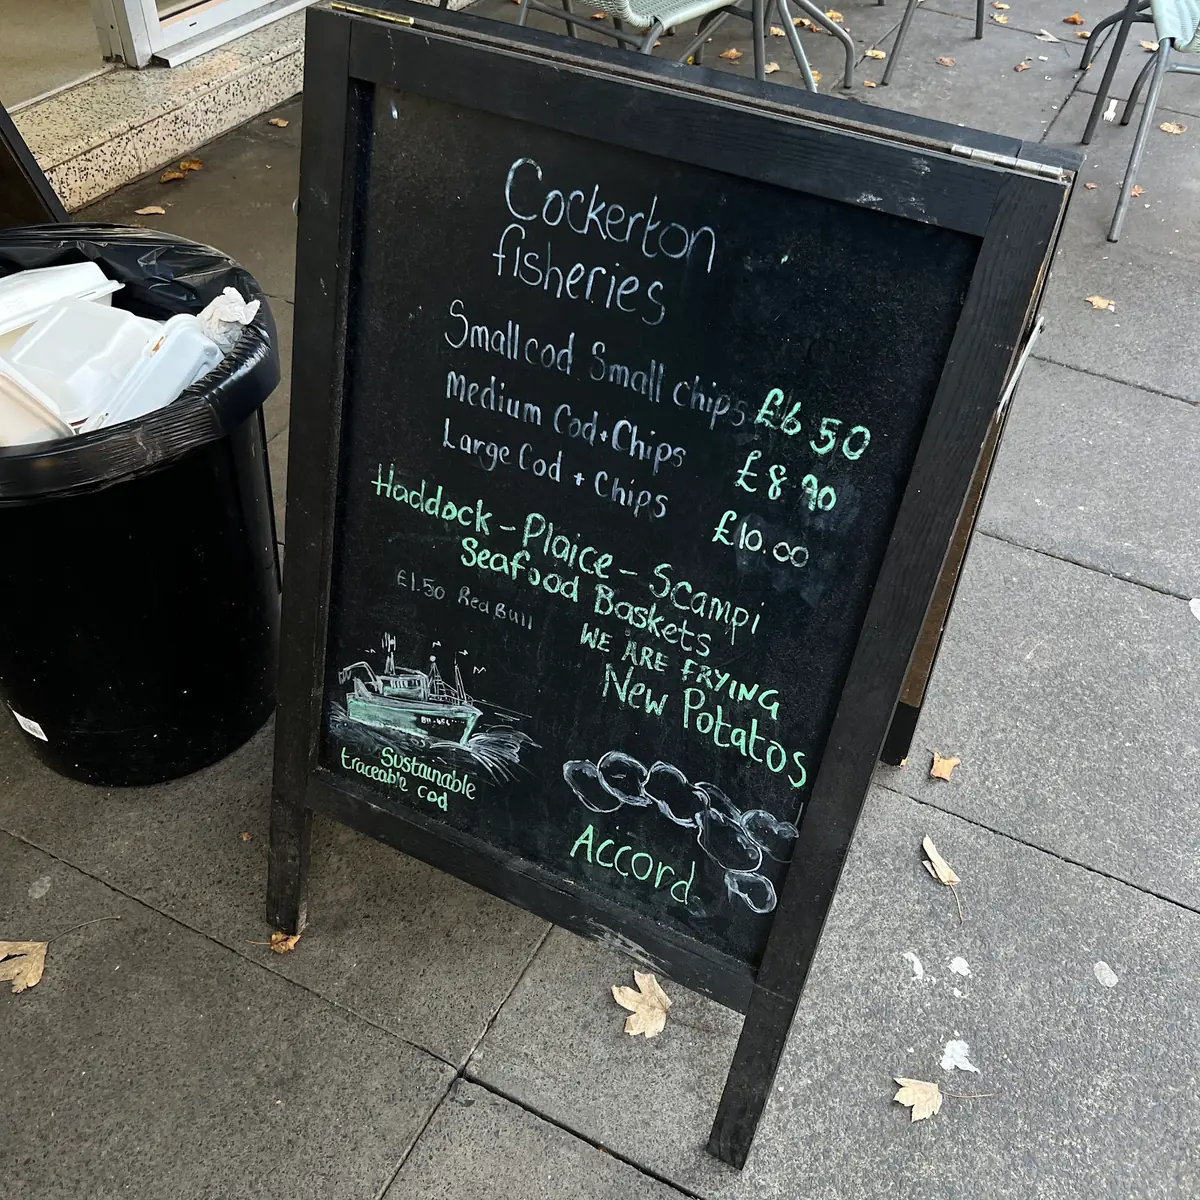 Cockerton
fisheries
Small cod Small chips £6 50
Medium Cod + Chips £8.90
Large Cod + Chips £10.00
Haddock - Plaice - Scampi
Seafood Baskets
£1.50 Red Bull
WE ARE FRYING
New Potatos
Sustainable
traceable cod
Accord